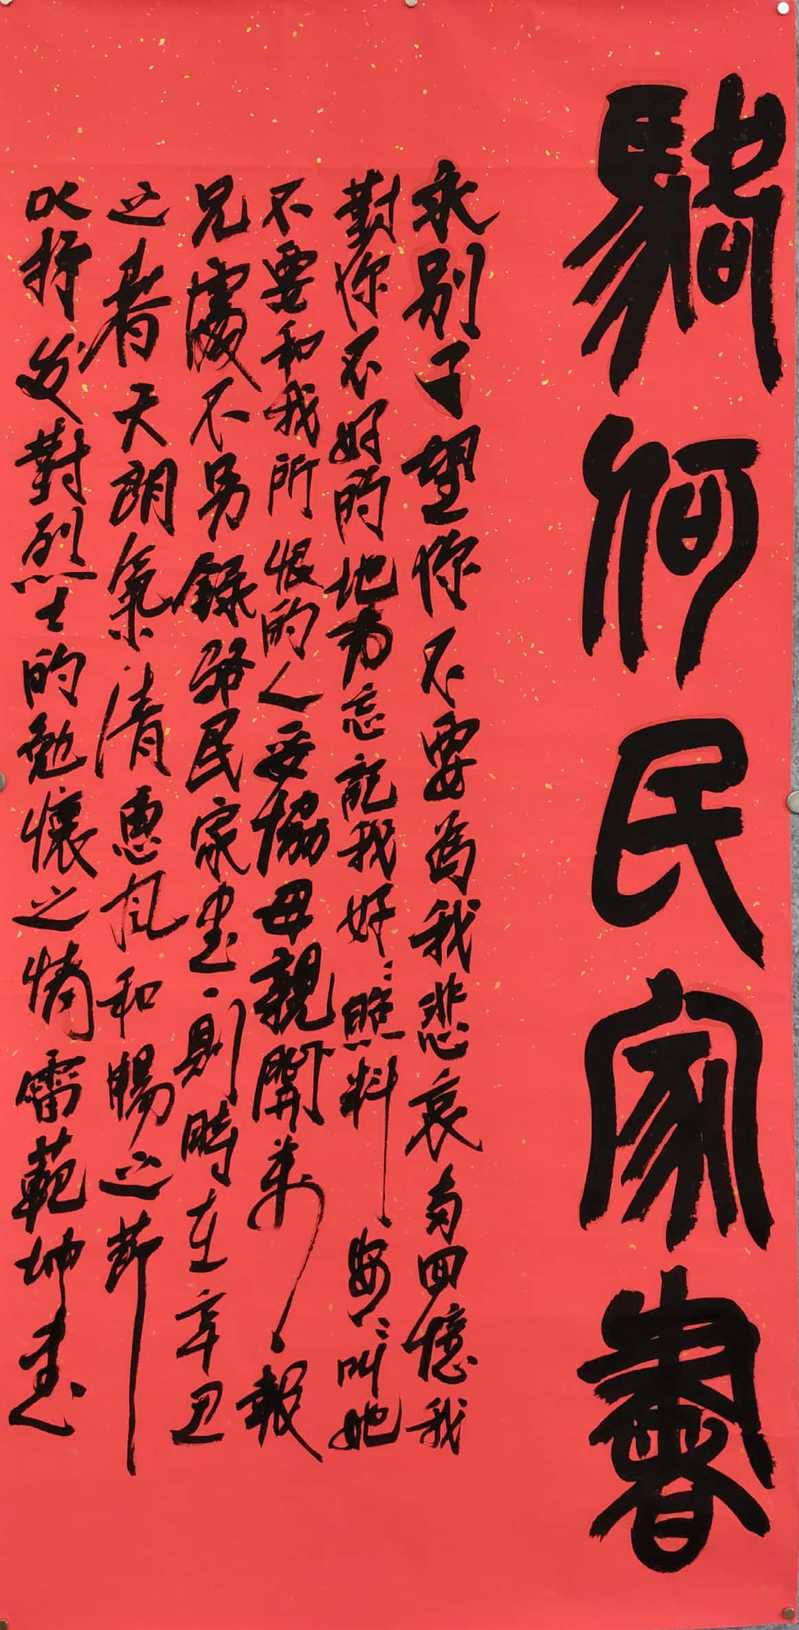 駱何民家書
永别了望你不要為我悲哀多回憶我
對你不好的地方忘記我好〻照料安〻叫她
不要和我所恨的人妥協母親開弟報
兄處不另錄骆民家書一則時在辛丑
之春天朗氣清惠風和暢之節
以抒发對烈士的勉懷之情雷範坤書